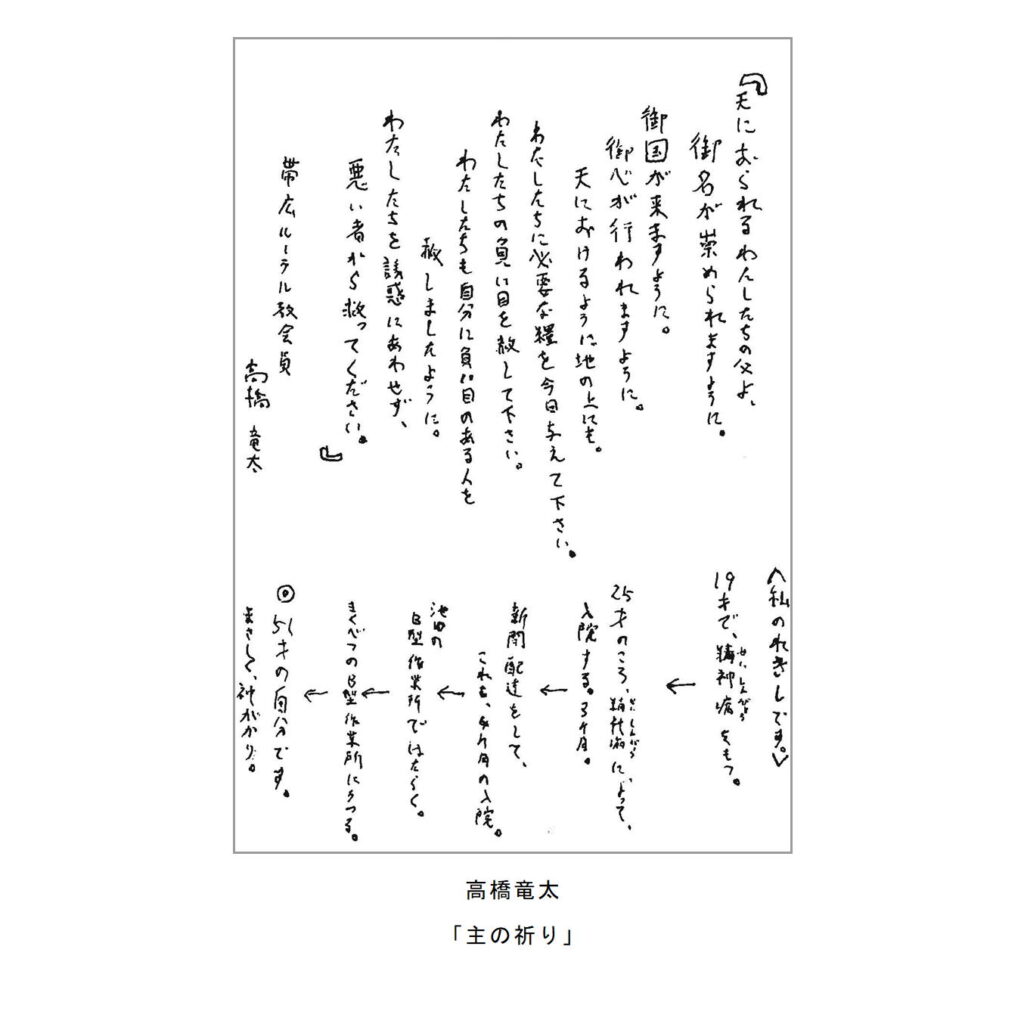 『天におられるわたしたちの父よ、
御名が崇められますように。
御国が来ますように。
御心が行われますように。
天におけるように地の上にも。
わたしたちに必要な糧を今日与えて下さい。
わたしたちの負い目を赦して下さい。
わたしたちも自分に負い目のある人を
赦しましたように。
わたしたちを誘惑にあわせず、
悪い者から救ってください。』
帯広ルーラル教会員
高橋 竜太
〈私のれきしです。〉
19才で、精神病をもつ。
せいしんびょう
←
25才のころ、精神病に、よって、
せいしんびょう
入院する。3ヶ月。
←
新聞配達をして、
これも、4ヶ月の入院。
←
池田の
B型作業所ではたらく。
←
まくべつのB型作業所にうつる。
←
◎51才の自分です。
まさして、神がかり。
高橋竜太
「主の祈り」